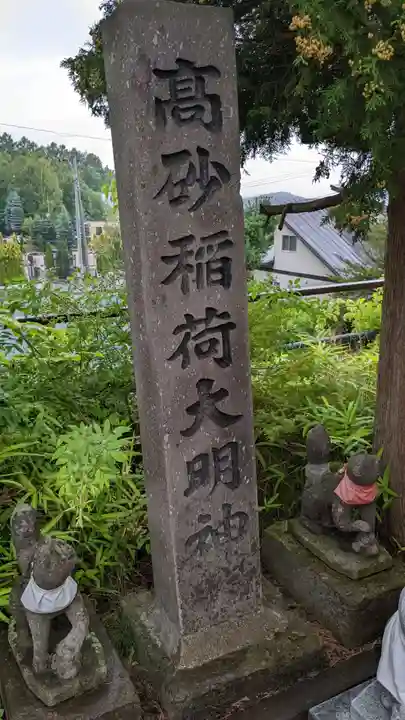 髙砂稲荷大明神